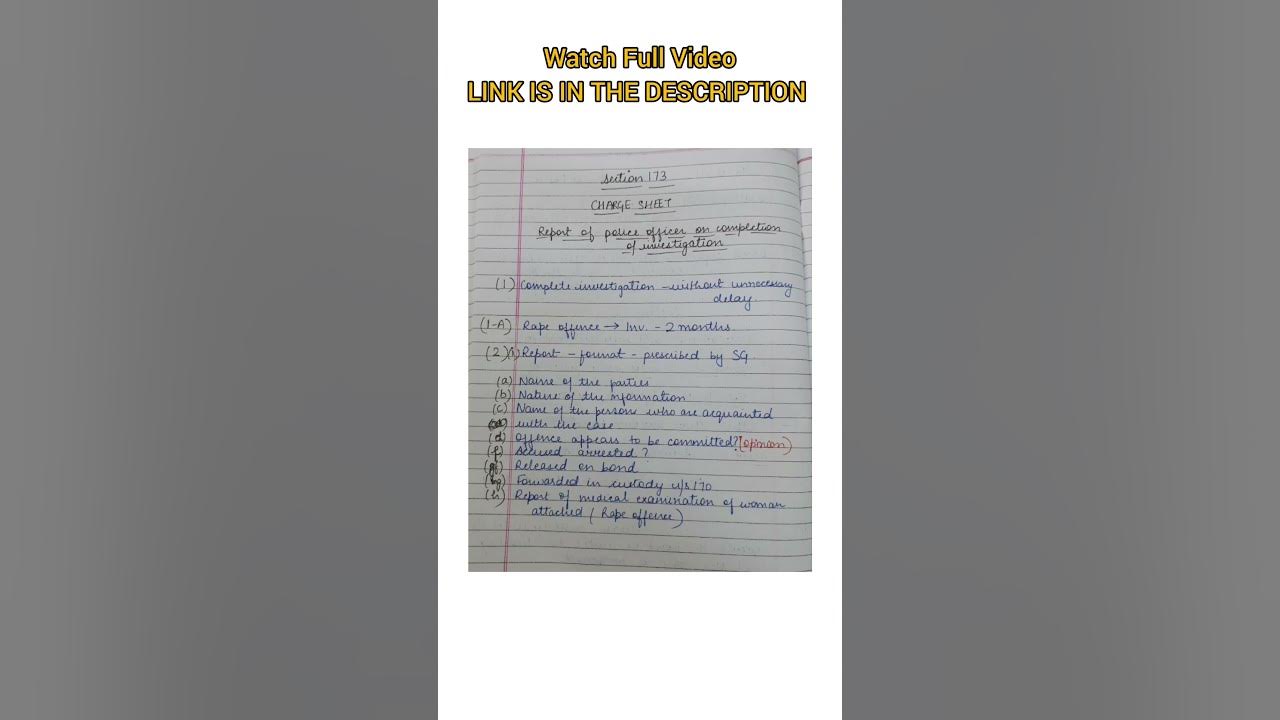 Watch Full Video
LINK IS IN THE DESCRIPTION
Section 173
CHARGE SHEET
Report of police officer on completion
of investigation
(1) Complete investigation - without unnecessary
delay.
(1-A) Rape offence → Inv. - 2 months.
(2)(i) Report - format - prescribed by SG.
(a) Name of the parties
(b) Nature of the information
(c) Name of the persons who are acquainted
with the case
(d) Offence appears to be committed? (opinion)
(f) Accused arrested?
Released on bond
Forwarded in custody u/s 170
(h) Report of medical examination of woman
attached (Rape offence)